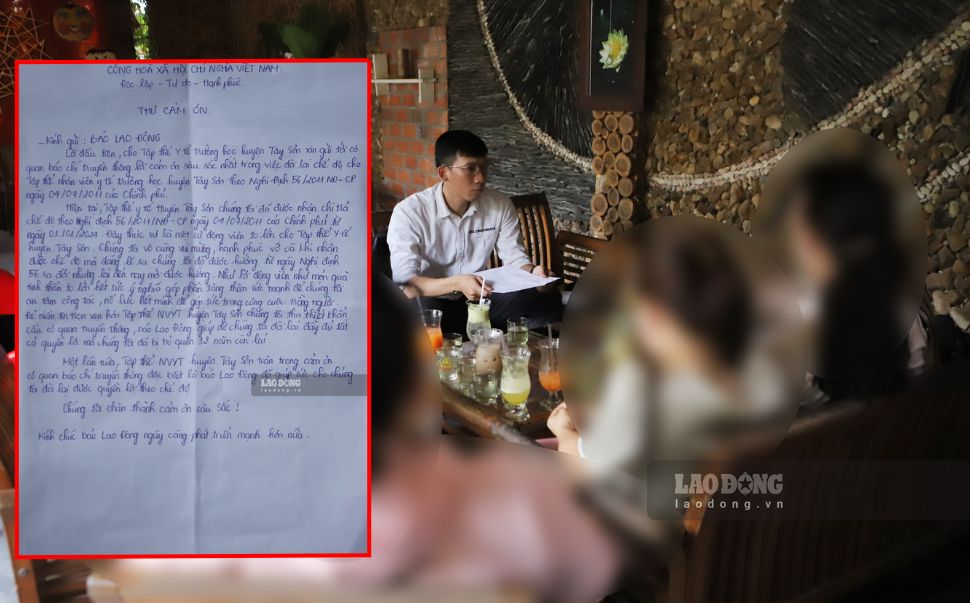 CỘNG HOÀ XÃ HỘI CHỦ NGHĨA VIỆT NAM.
Độc lập - Tự do - Hạnh phúc.
THƯ CẢM ƠN.
_ Kính gửi : BÁO LAO ĐỘNG
Là đầu tiên, cho Tập thể Y tế Trường học huyện Tây Sơn xin gửi tới cơ
quan báo chí truyền thông lời cảm ơn sâu sắc nhất trong việc đòi lại chế độ cho
Tập thể nhân viên y tế trường học huyện Tây Sơn theo Nghị Định 56/2011 NĐ-CP
ngày 04/07/2011 của Chính phủ.
Hiện tại, Tập thể y tế huyện Tây Sơn chúng tôi đã được nhận chi trả
chế độ theo Nghị định 56/2011/NĐ-CP ngày 04/07/2011 của Chính phủ từ
ngày 01.01.2024. Đây thực sự là một sự động viên to lớn cho Tập thể Y tế
huyện Tây Sơn. Chúng tôi vô cùng vui mừng, hạnh phúc vỡ oà khi nhận
được chế độ mà đáng lẽ ra chúng tôi đã được hưởng từ ngày Nghị định
56 ra đời nhưng lại đến nay mới được hưởng. Như lời động viên như món quà
tinh thần to lớn hết sức ý nghĩa góp phần tăng thêm sức mạnh để chúng tôi
an tâm công tác, nỗ lực hết mình để góp sức trong công cuộc trồng người.
Để niềm tin trọn vẹn hơn Tập thể NVYT huyện Tây Sơn chúng tôi tha thiết khẩn
cầu cơ quan truyền thông, báo Lao Động giúp đỡ chúng tôi đòi lại đầy đủ tất
cả quyền lợi mà chúng tôi đã bị bỏ quên 12 năm còn lại
Một lần nữa, Tập thể NVYT huyện Tây Sơn trân trọng cảm ơn
cơ quan báo chí truyền thông đặc biệt là báo Lao Động đã giúp sức cho chúng
tôi đòi lại được quyền lợi theo chế độ
LAO ĐỘNG
Chúng tôi chân thành cảm ơn sâu sắc !
Kính chúc báo Lao Động ngày càng phát triển mạnh hơn nữa .
LAO ĐỘNG
laodong.vn